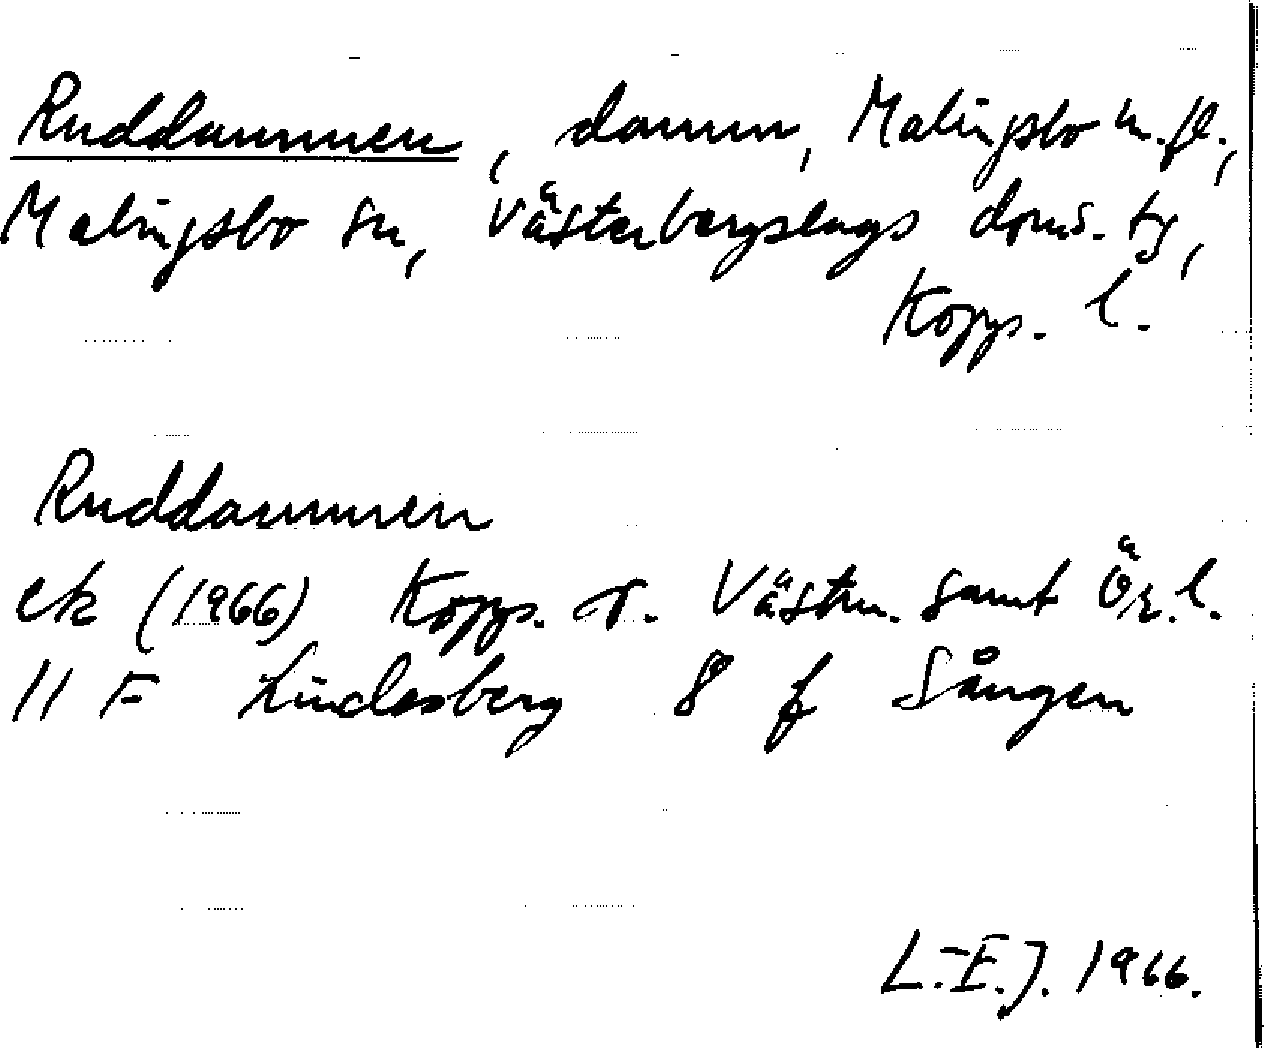 Ruddammen, damm, Malingsbo m.fl.,
Malingsbo sn, Västerbergslags doms. tg,
Kopps. l.
Ruddammen
ek (1966) Kopps. o. Västm. samt Ör. l.
11 F Lindesberg 8 f Sången
L.-E.J. 1966.